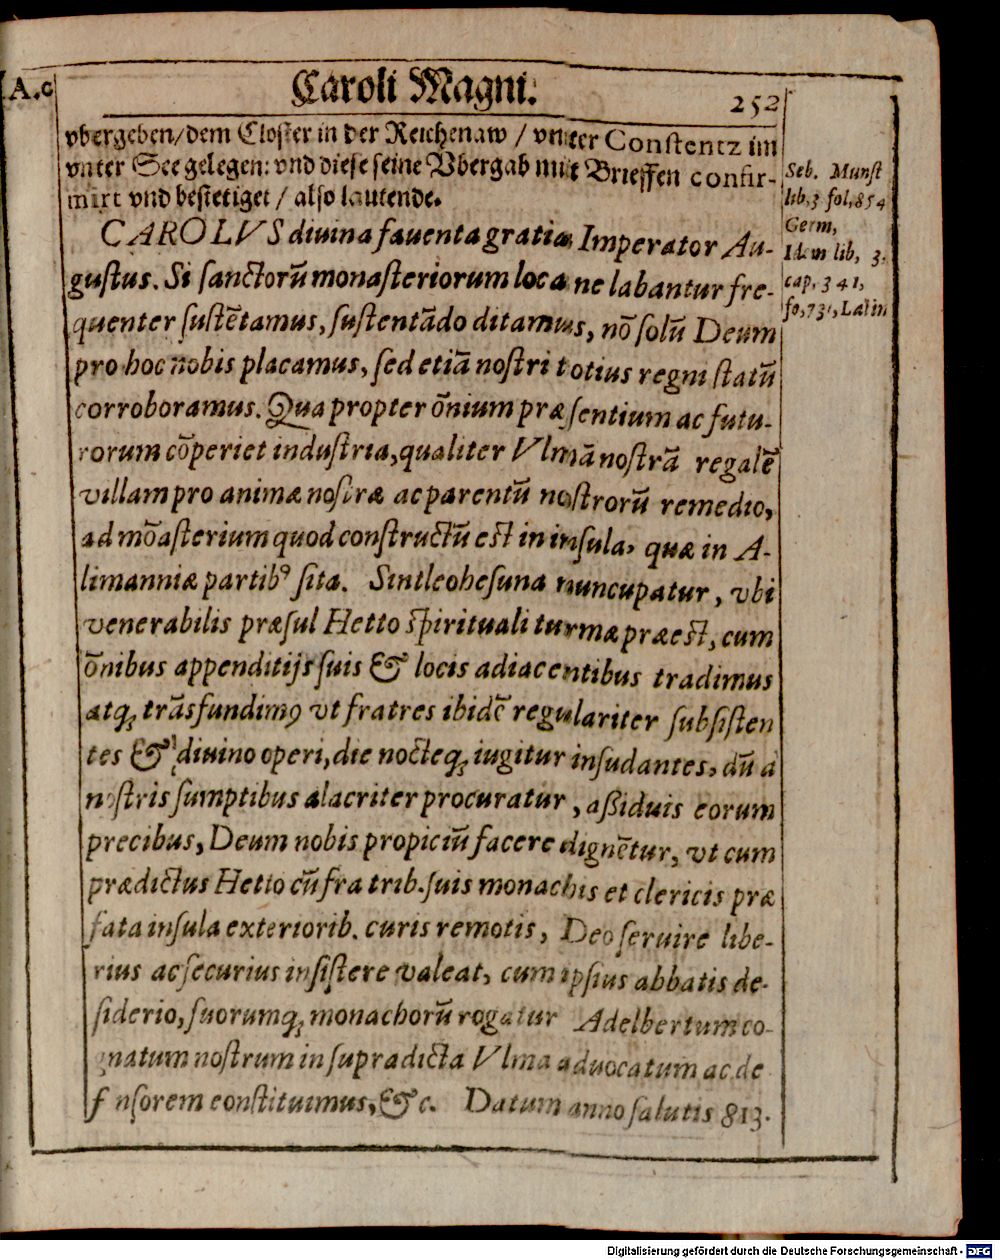 A.c
Caroli Magni.
252
vbergeben/dem Closter in der Reichenaw / vnter Constentz im
vnter See gelegen: vnd diese seine Vbergab mit Brieffen confir-
mirt vnd bestetiget / also lautende.
CAROLVS diuina fauenta gratia Imperator Au-
gustus. Si sanctorū monasteriorum loca ne labantur fre-
quenter sustētamus, sustentādo ditamus, nō solū Deum
pro hoc nobis placamus, sed etiā nostri totius regni statū
corroboramus. Qua propter ōnium præsentium ac futu-
rorum cōperiet industria, qualiter Vlmā nostrā regalē
villam pro animæ nostræ ac parentū nostrorū remedio,
ad mōasterium quod constructū est in insula, quæ in A-
limanniæ partibꝰ sita. Sintleohesuna nuncupatur, vbi
venerabilis præsul Hetto spirituali turmæ præest, cum
ōnibus appenditijs suis & locis adiacentibus tradimus
atq; trāsfundimꝰ vt fratres ibidē regulariter subsisten
tes & diuino operi, die nocteq; iugitur insudantes, dū à
nostris sumptibus alacriter procuratur, aßiduis eorum
precibus, Deum nobis propiciū facere dignētur, vt cum
prædictus Hetto cū fratrib. suis monachis et clericis præ
fata insula exteriorib. curis remotis, Deo seruire libe-
rius ac securius insistere valeat, cum ipsius abbatis de-
siderio, suorumq; monachorū rogatur Adelbertum co-
gnatum nostrum in supradicta Vlma aduocatum ac de
f nsorem constituimus, &c. Datum anno salutis 813.
Seb. Munst
lib,3 fol,854
Germ,
Idem lib, 3.
cap, 341,
fo,731, Latin
Digitalisierung gefördert durch die Deutsche Forschungsgemeinschaft - DFG